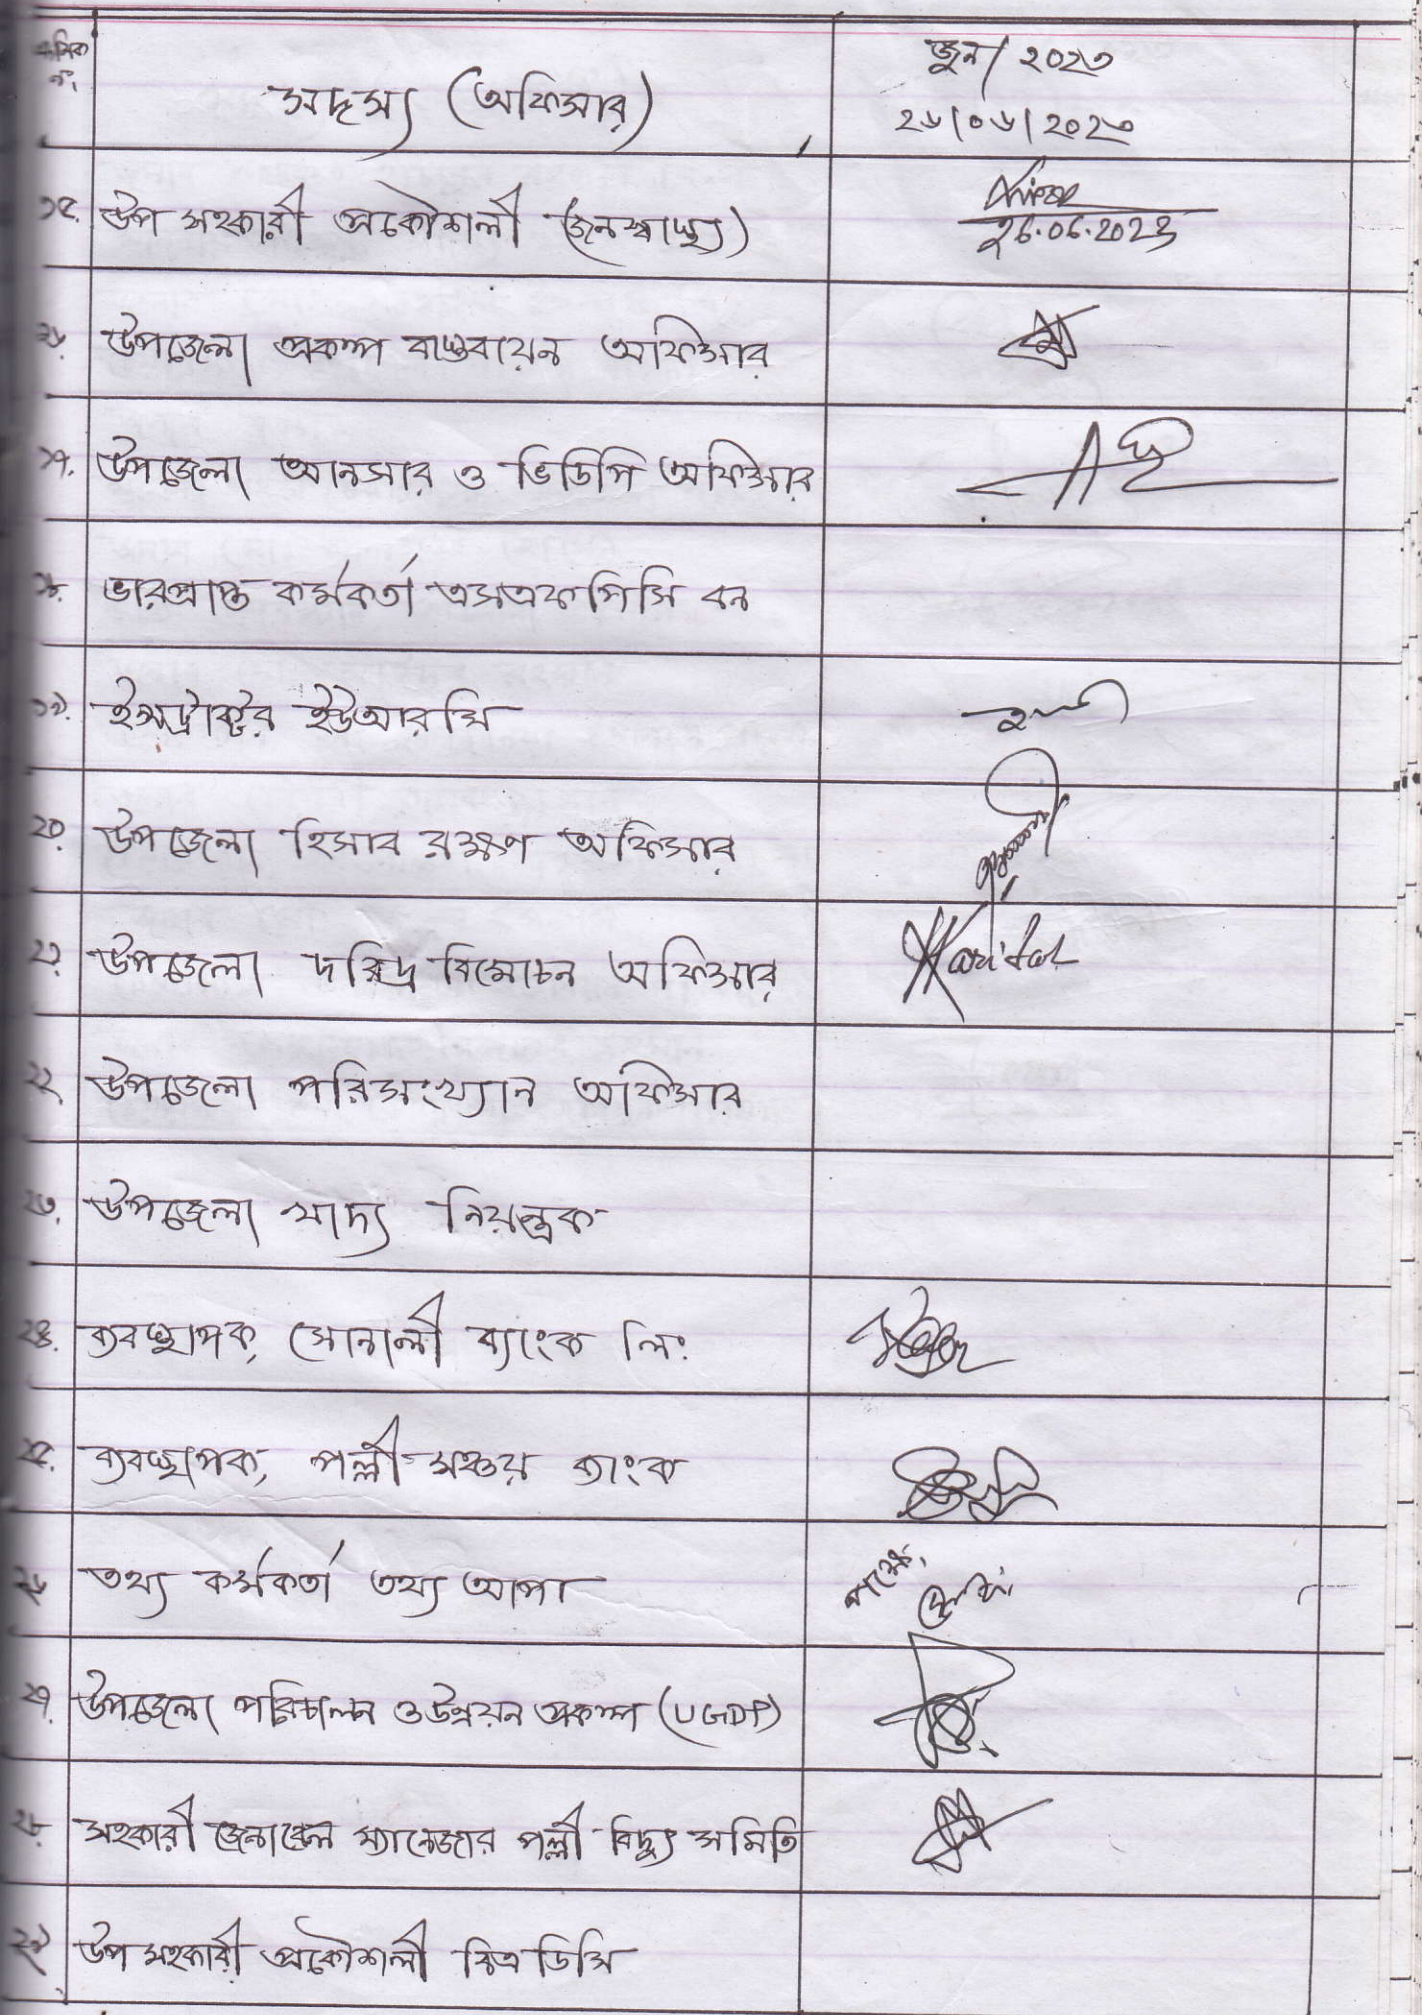 ক্রমিক নং সদস্য (অফিসার) জুন/ ২০২৩
২৬/০৬/২০২৩
১৫. উপ সহকারী প্রকৌশলী (জনস্বাস্থ্য)
26.06.2023
১৬. উপজেলা প্রকল্প বাস্তবায়ন অফিসার
১৭. উপজেলা আনসার ও ভিডিপি অফিসার
১৮. ভারপ্রাপ্ত কর্মকর্তা এসএফপিসি বন
১৯. ইন্সট্রাক্টর ইউআরসি
২০. উপজেলা হিসাব রক্ষণ অফিসার
২১. উপজেলা দরিদ্র বিমোচন অফিসার
২২. উপজেলা পরিসংখ্যান অফিসার
২৩. উপজেলা খাদ্য নিয়ন্ত্রক
২৪. ব্যবস্থাপক, সোনালী ব্যাংক লিং
২৫. ব্যবস্থাপক, পল্লী সঞ্চয় ব্যাংক
২৬. তথ্য কর্মকর্তা তথ্য আপা
২৭. উপজেলা পরিচালন ও উন্নয়ন প্রকল্প (UGDP)
২৮. সহকারী জেনারেল ম্যানেজার পল্লী বিদ্যুৎ সমিতি
২৯. উপ সহকারী প্রকৌশলী বিএডিসি